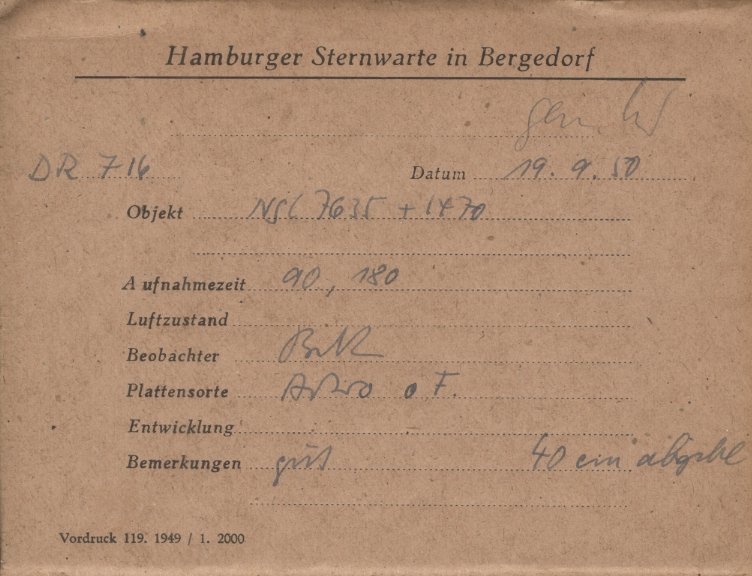 Hamburger Sternwarte in Bergedorf
DR 716 Datum 19. 9. 50
Objekt NGC 7635 + 1470
Aufnahmezeit 90, 180
Luftzustand
Beobachter
Plattensorte Astro o F.
Entwicklung
Bemerkungen gut 40 cm
Vordruck 119. 1949 / 1. 2000